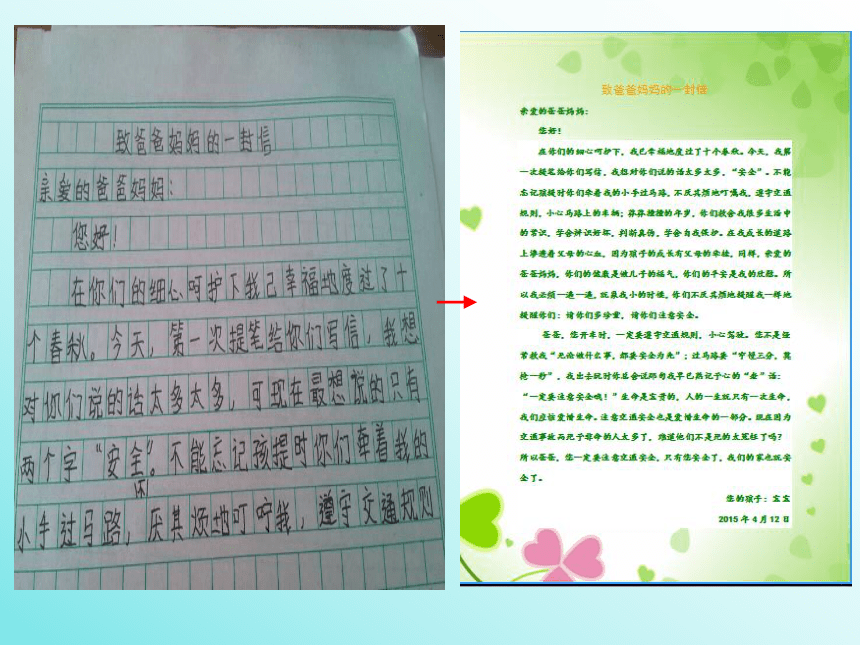 致爸爸妈妈的一封信
亲爱的爸爸妈妈：
您好！
在你们的细心呵护下我己幸福地度过了十
个春秋。今天，第一次提笔给你们写信，我想
对你们说的话太多太多，可现在最想说的只有
两个字“安全”。不能忘记孩提时你们牵着我的
小手过马路，不厌其烦地叮咛我，遵守交通规则
致爸爸妈妈的一封信
亲爱的爸爸妈妈：
您好！
在你们的细心呵护下，我已幸福地度过了十个春秋。今天，我第
一次提笔给你们写信，我想对你们说的话太多太多，“安全”。不能
忘记孩提时你们牵着我的小手过马路，不厌其烦地叮嘱我，遵守交通
规则，小心马路上的车辆；莽莽撞撞的年岁，你们教会我很多生活中
的常识，学会辨识好坏，判断真伪，学会自我保护。在我成长的道路
上渗透着父母的心血，因为孩子的成长有父母的牵挂，同样，亲爱的
爸爸妈妈，你们的健康是做儿子的福气，你们的平安是我的欣慰。所
以我必须一遍一遍，就象我小的时候，你们不厌其烦地提醒我一样地
提醒你们：请你们多珍重，请你们注意安全。
爸爸，您开车时，一定要遵守交通规则，小心驾驶。您不是经
常教我“无论做什么事，都要安全为先”；过马路要“宁慢三分，莫
抢一秒”，我出去玩时你总会说那句我早已熟记于心的“老”话：
“一定要注意安全哦！”生命是宝贵的，人的一生就只有一次生命，
我们应该爱惜生命。注意交通安全也是爱惜生命的一部分。现在因为
交通事故而死于非命的人太多了，难道他们不是死的太冤枉了吗？
所以爸爸，您一定要注意交通安全，只有您安全了，我们的家也就安
全了。
您的孩子：宝宝
2015 年 4 月 12 日